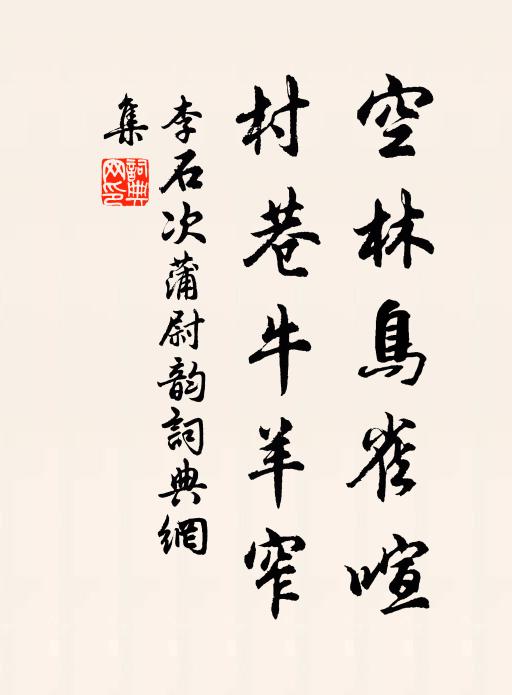 空林鳥雀喧
村巷牛羊窄
李石次蒲尉韵詞典網
集
詞典網印